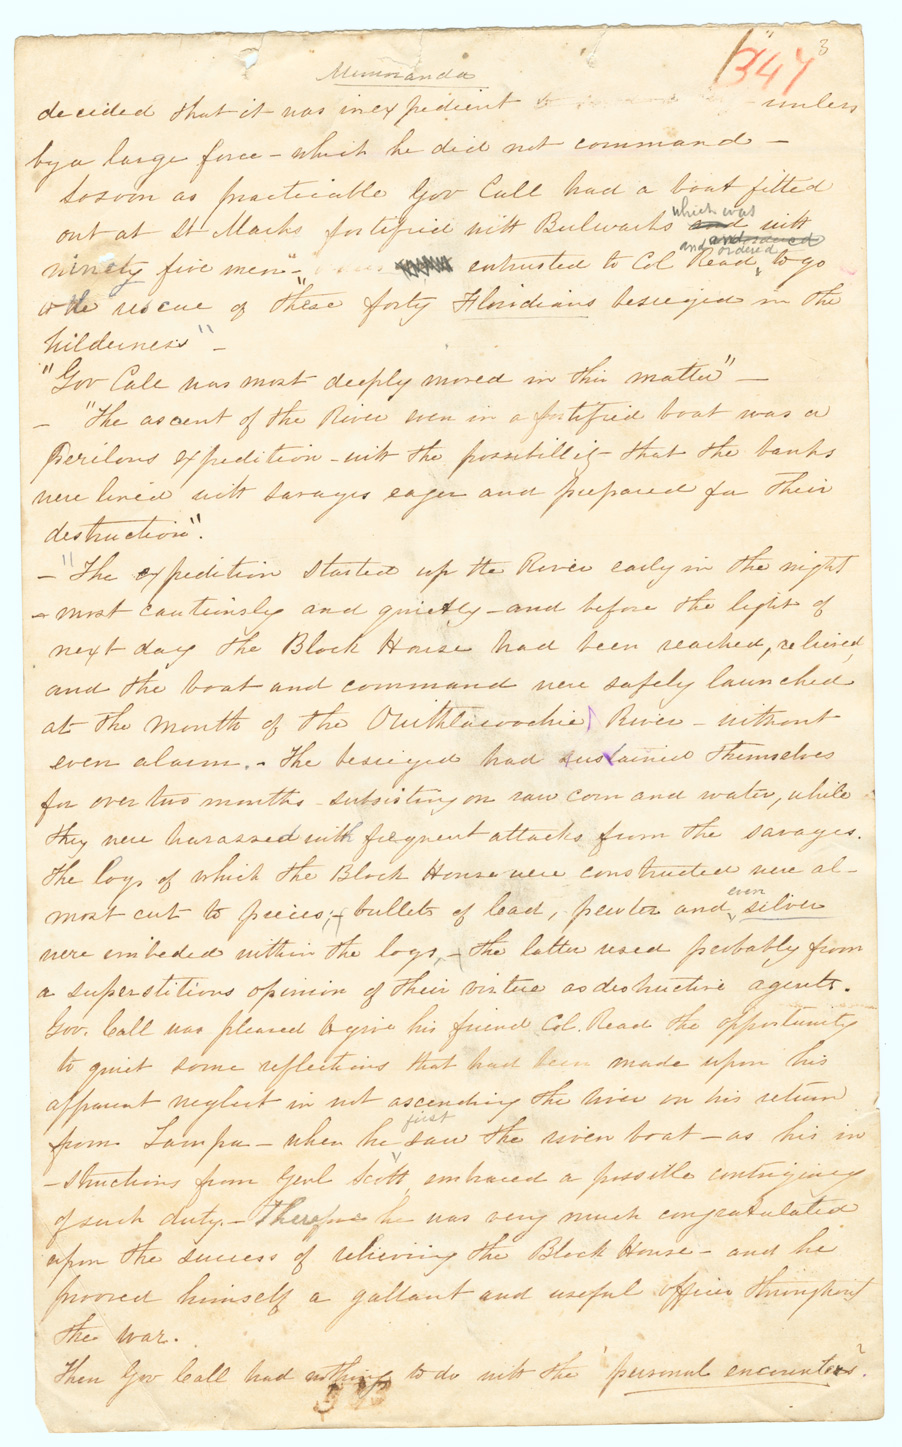 Memoranda
347 8
decided that it was inexpedient to unless
by a large force - which he did not command -
So soon as practicable Gov Call had a boat fitted
out at St Marks fortified with Bulwarks which was and with
ninety five men" - entrusted to Col Read, and ordered to go
to the rescue of "these forty Floridians besieged in the
wilderness" -
"Gov Call was most deeply moved in this matter" -
- "The ascent of the River even in a fortified boat was a
Perilous expedition - with the possibility that the banks
were lined with savages eager and prepared for their
destruction".
- "The expedition started up the River early in the night
- most cautiously and quietly - and before the light of
next day the Block House had been reached, relieved,
and the boat and command were safely launched
at the mouth of the Ouithlacoochie River - without
even alarm. - The besieged had sustained themselves
for over two months - subsisting on raw corn and water, while
they were harassed with frequent attacks from the savages.
The logs of which the Block House were constructed were al-
most cut to pieces; - bullets of lead, pewter and even silver
were embeded within the logs, - the latter used probably from
a superstitious opinion of their virtue as destructive agents.
Gov. Call was pleased to give his friend Col. Read the opportunity
to quiet some reflections that had been made upon his
apparent neglect in not ascending the river on his return
from Tampa - when he first saw the river boat - as his in
-structions from Genl Scott, embraced a possible contingency
of such duty. - Therefore he was very much congratulated
upon the success of relieving the Block House - and he
prooved himself a gallant and useful officer throughout
the war.
Then Gov Call had nothing to do with the personal encounters?